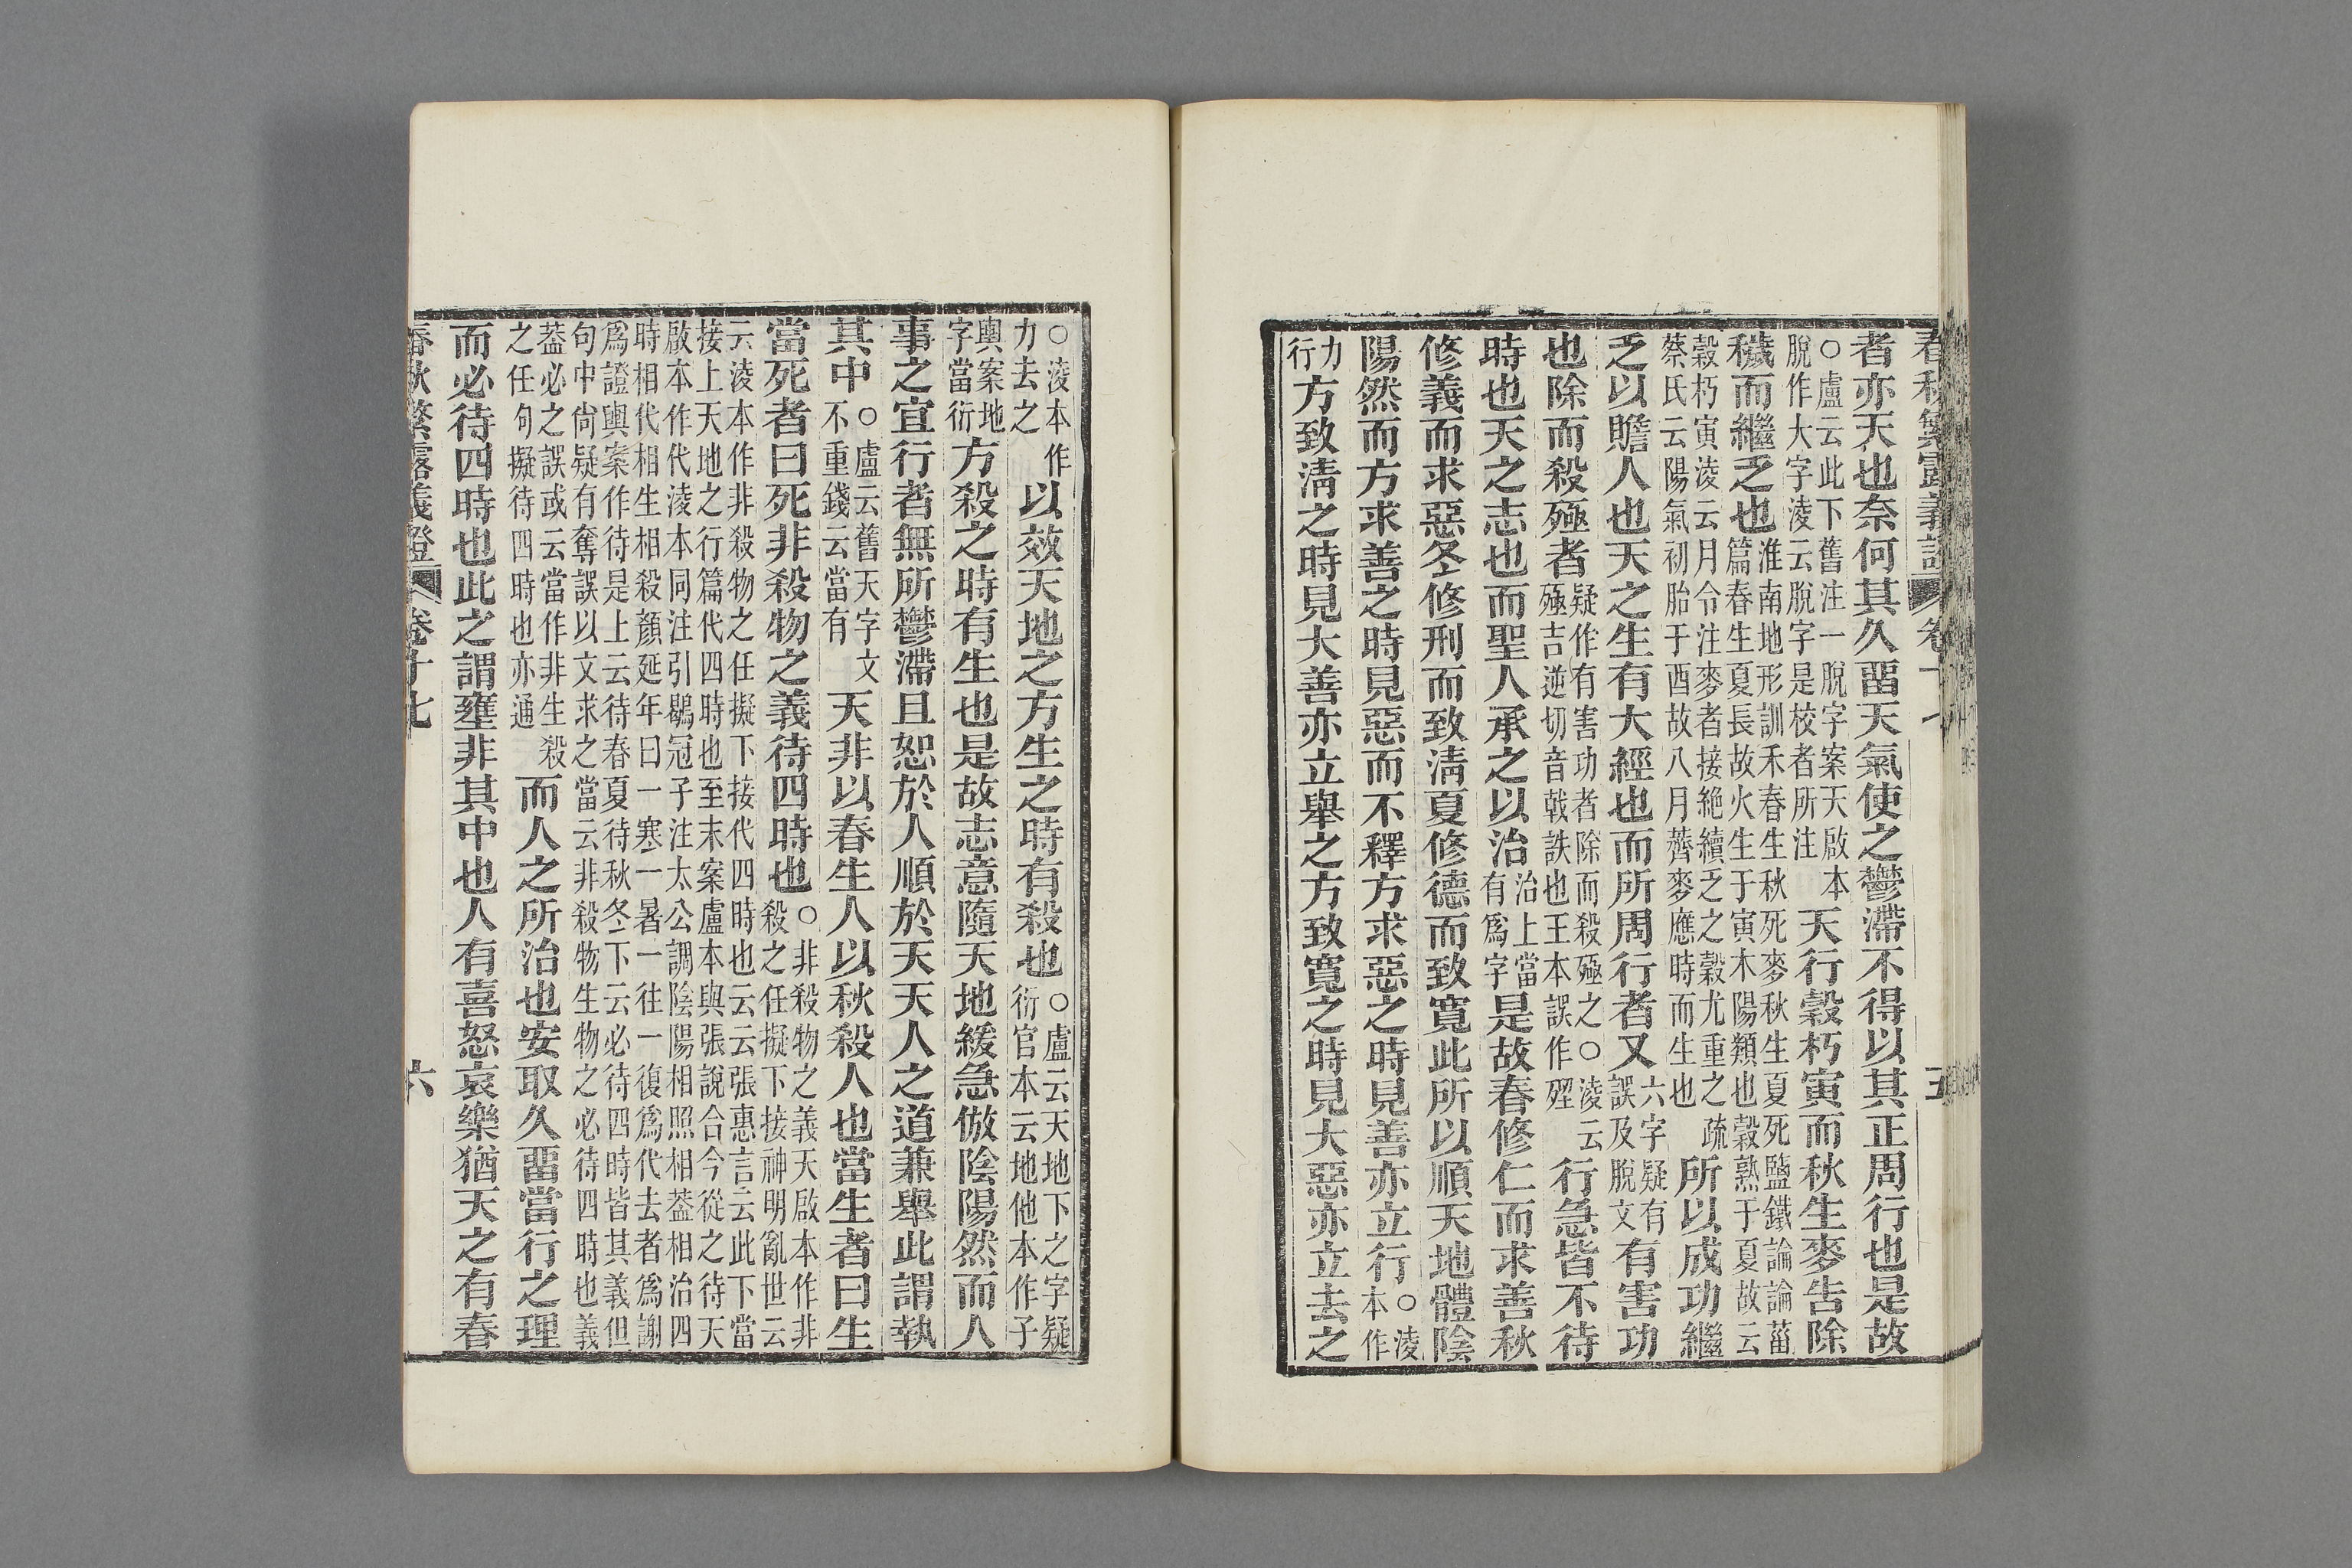 春秋繁露義證 卷十七 五
者亦天也奈何其久畱天氣使之鬱滯不得以其正周行也是故
○盧云此下舊注一脫字案天啟本
脫作大字淩云脫字是校者所注
天行穀朽寅而秋生麥告除
穢而繼乏也
淮南地形訓禾春生秋死麥秋生夏死鹽鐵論論菑
篇春生夏長故火生于寅木陽類也穀熟于夏故云
穀朽寅淩云月令注麥者接絶續乏之穀尤重之疏
蔡氏云陽氣初胎于酉故八月薺麥應時而生也
所以成功繼
乏以贍人也天之生有大經也而所周行者又
六字疑有
誤及脫文
有害功
也除而殺殛者
疑作有害功者除而殺殛之○淩云
殛吉逆切音戟誅也王本誤作
行急皆不待
時也天之志也而聖人承之以治
治上當
有爲字
是故春修仁而求善秋
修義而求惡冬修刑而致淸夏修德而致寬此所以順天地體陰
陽然而方求善之時見惡而不釋方求惡之時見善亦立行
○淩
本作
力
行
方致淸之時見大善亦立舉之方致寬之時見大惡亦立去之
○淩本作
力去之
以效天地之方生之時有殺也
○盧云天地下之字疑
衍官本云地他本作子
輿案地
字當衍
方殺之時有生也是故志意隨天地緩急倣陰陽然而人
事之宜行者無所鬱滯且恕於人順於天天人之道兼舉此謂執
其中
○盧云舊天字文
不重錢云當有
天非以春生人以秋殺人也當生者曰生
當死者曰死非殺物之義待四時也
○非殺物之義天啟本作非
殺之任擬下接神明亂世云
云淩本作非殺物之任擬下接代四時也云云張惠言云此下當
接上天地之行篇代四時也至末案盧本與張說合今從之待天
啟本作代淩本同注引鶡冠子注太公調陰陽相照相葢相治四
時相代相生相殺顏延年曰一寒一暑一往一復爲代去者爲謝
爲證輿案作待是上云待春夏待秋冬下云必待四時皆其義但
句中尙疑有奪誤以文求之當云非殺物生物之必待四時也義
葢必之誤或云當作非生殺
之任句擬待四時也亦通
而人之所治也安取久畱當行之理
而必待四時也此之謂壅非其中也人有喜怒哀樂猶天之有春
春秋繁露義證 卷十七 六